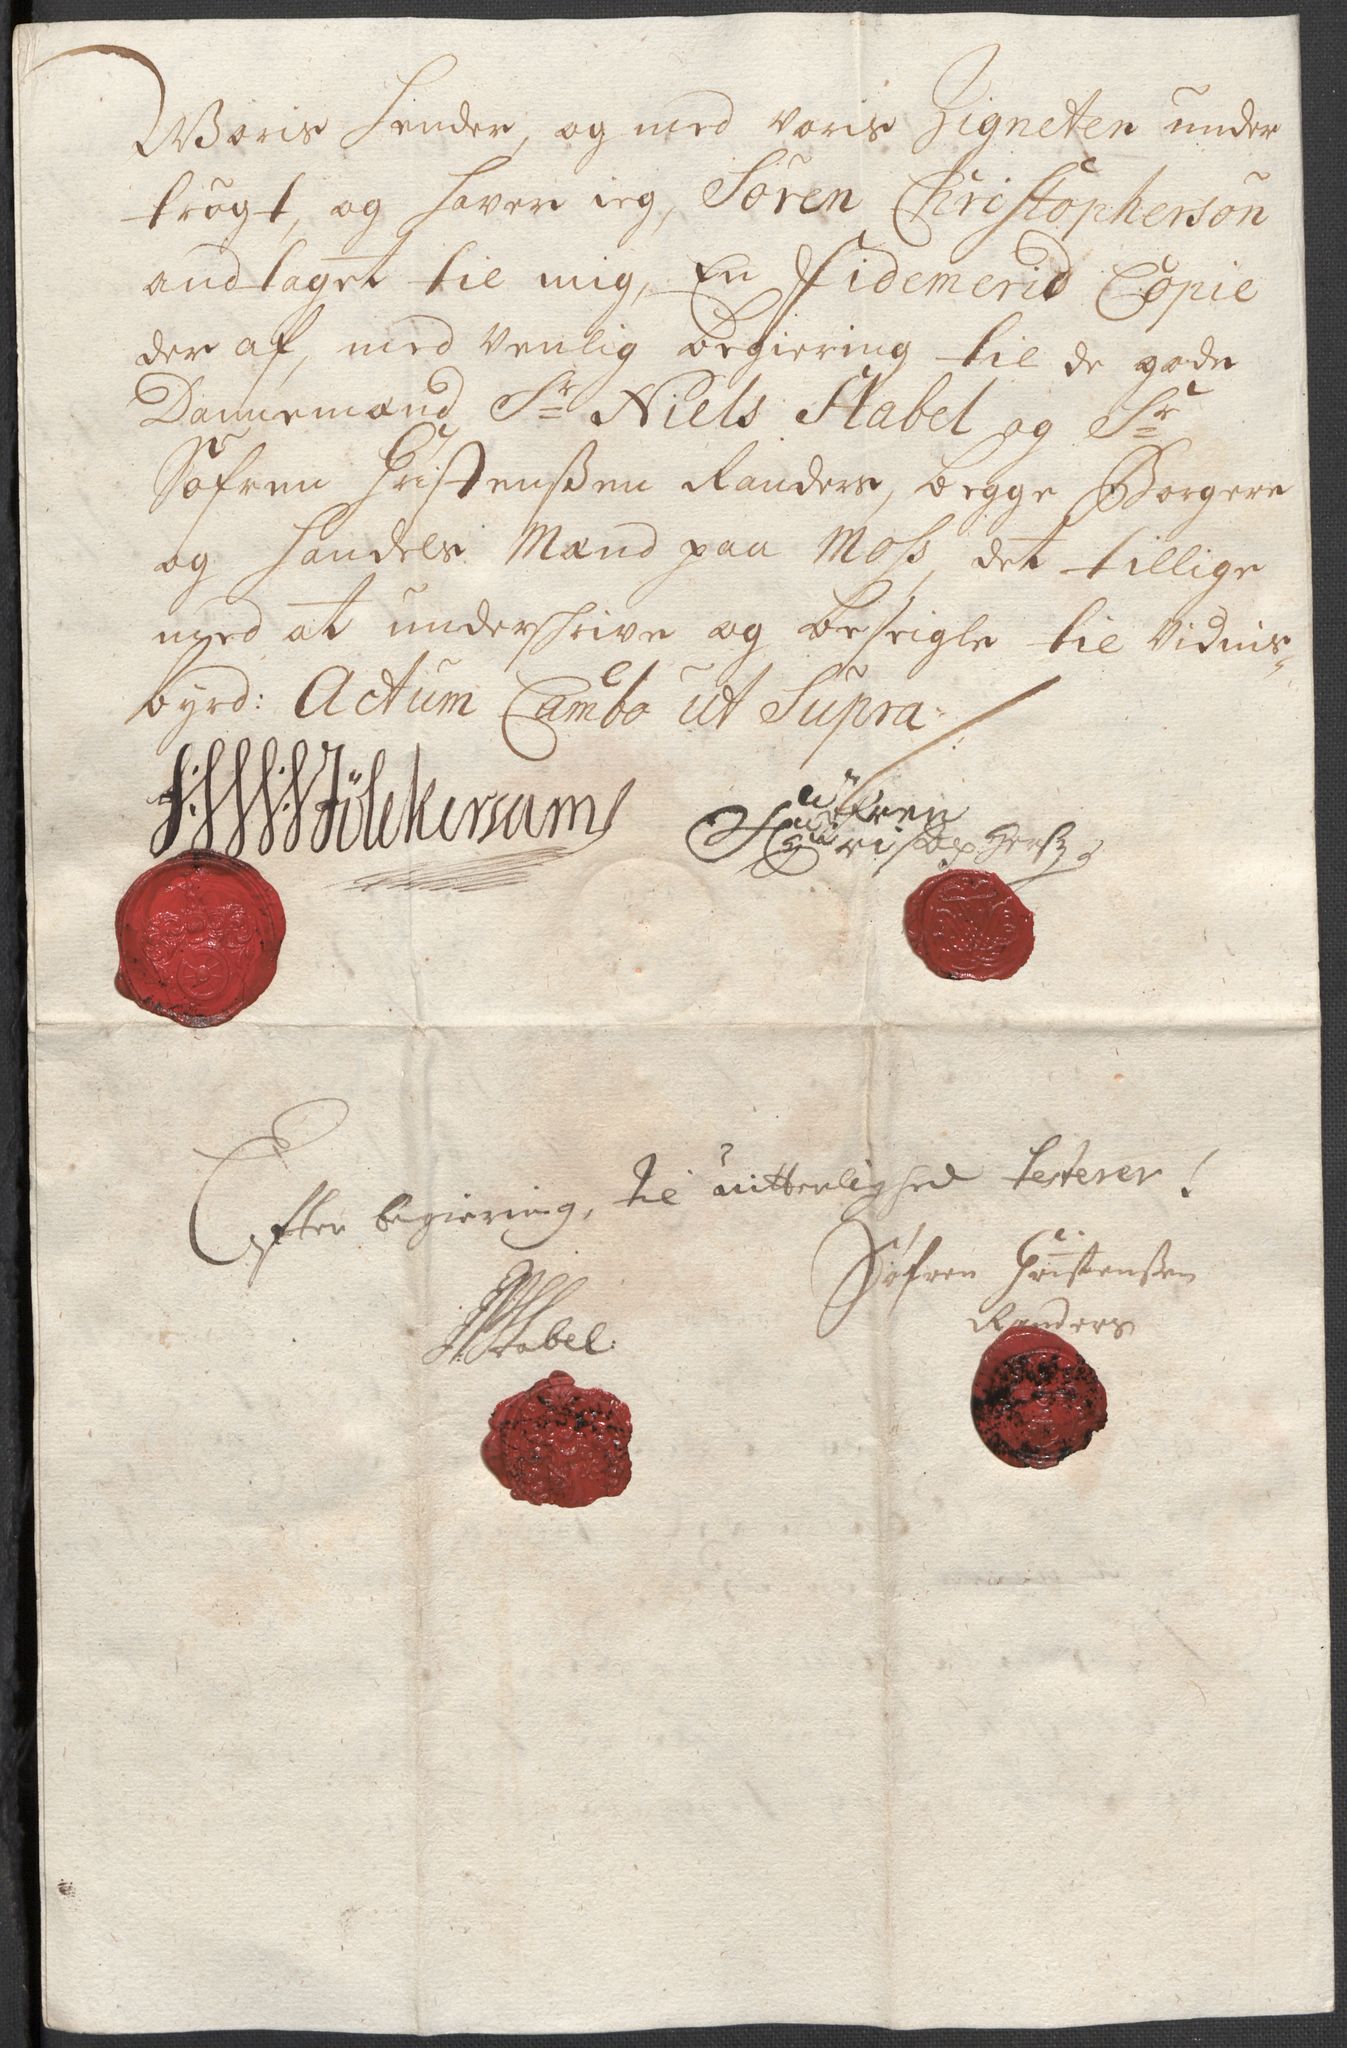 Woris hender, og med voris Zigneten under
trögt, og haver ieg, Sören Christopherson
andtaget til mig, En Fidemerid Copie
der af, med venlig begiering til de gode
Dannemænd Sr Niels Stabel og Sr
Söfren Christenßen Randers, begge Borgere
og Handels Mænd paa Moss, det tillige
med at underskrive og beseigle til vidnis,,
byrd: Actum Cambo ut Supra
Söfren
Stabel:
Efter begiering, til vitterlighed testerer!
Söfren Christenßen
Randers